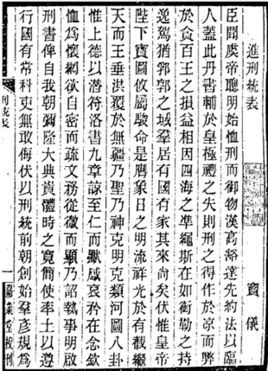 進刑統表
竇儀
臣聞虞帝聰明始恤刑而御物漢高豁達先約法以臨
人蓋此丹書輔於皇極禮之失則刑之得作於涼而弊
於貪百王之損益相因四海之準繩斯在如銜勒之持
逸駕猶郛郭之域羣居有國有家其來尚矣伏惟皇帝
陛下寶圖攸屬駿命是膺象日之明流祥光於有截繼
天而王垂洪覆於無疆乃聖乃神克明克類河圖八卦
惟上德以潛符洛書九章諒至仁而默感哀矜在念欽
恤為懷網欲自密而疏文務從微而顯乃詔執事明啟
刑書俾自我朝彌隆大典貴體時之寬簡使率土以遵
行國有常科吏無敢侮伏以刑統前朝創始羣彥規為
刑統表
一
嘉業堂校刊